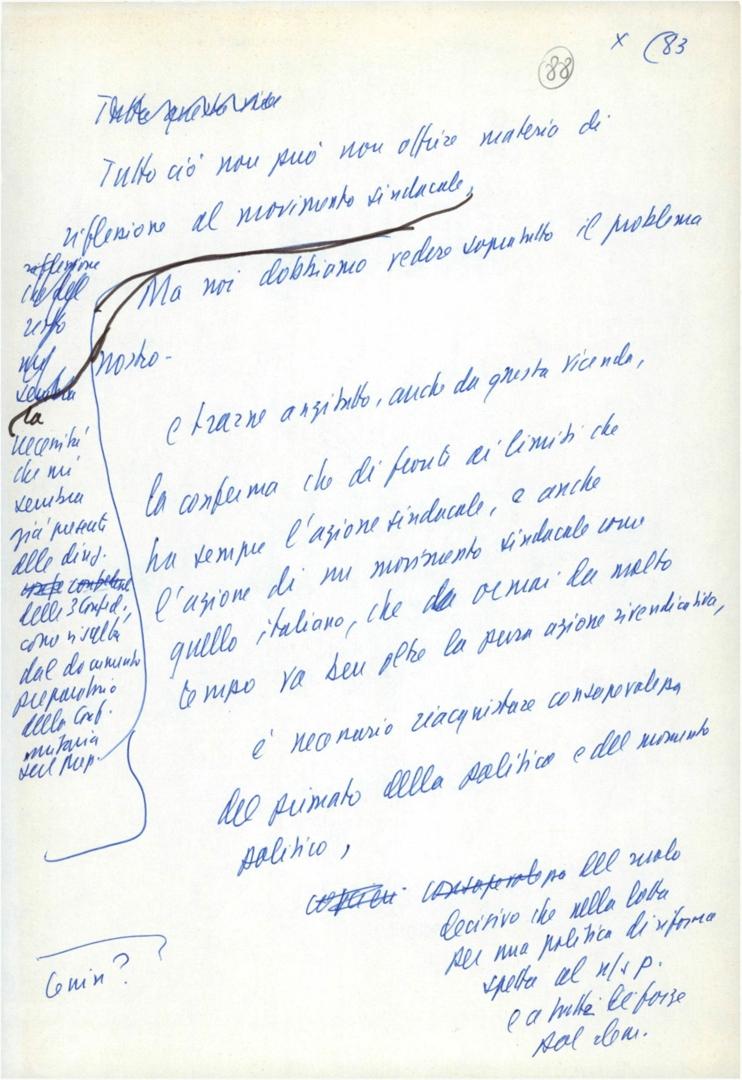 x (83
88
Tutto questo
Tutto ciò non può non offrire materia di
riflessione al movimento sindacale,
Ma noi dobbiamo vedere soprattutto il problema
nostro -
e trarne anzitutto, anche da questa vicenda,
la conferma che di fronte ai limiti che
ha sempre l'azione sindacale, e anche
l'azione di un movimento sindacale come
quello italiano, che da ormai da molto
tempo va ben oltre la pura azione rivendicativa,
è necessario riacquistare consapevolezza
del primato della politica e del momento
politico,
consapevolezza del ruolo
decisivo che nella lotta
per una politica di riforma
spetta al n/s p.
e a tutte le forze
pol. dem.
riflessione
che del
resto
mi
sembra
la
necessità
che mi
sembra
già presente
alle dirig.
delle 3 Confed.,
come risulta
dal documento
preparatorio
della Conf.
unitaria
sul Mezz.
Lenin?